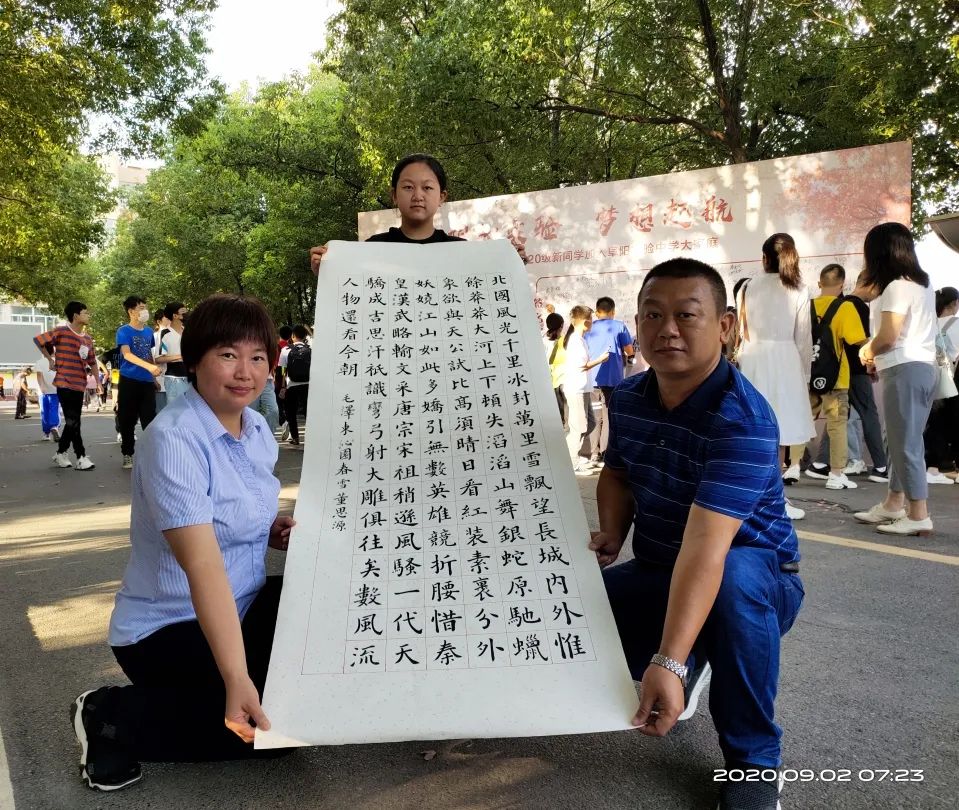 实验 梦想起航
20级新同学加入阜阳实验中学大家庭
北國風光千里冰封萬里雪飄望長城內外惟
餘莽莽大河上下頓失滔滔山舞銀蛇原馳蠟
象欲與天公試比高須晴日看紅裝素裹分外
妖嬈江山如此多嬌引無數英雄競折腰惜秦
皇漢武略輸文采唐宗宋祖稍遜風騷一代天
驕成吉思汗祇識彎弓射大雕俱往矣數風流
人物還看今朝 毛澤東沁園春雪董思源
2020.09.02 07:23